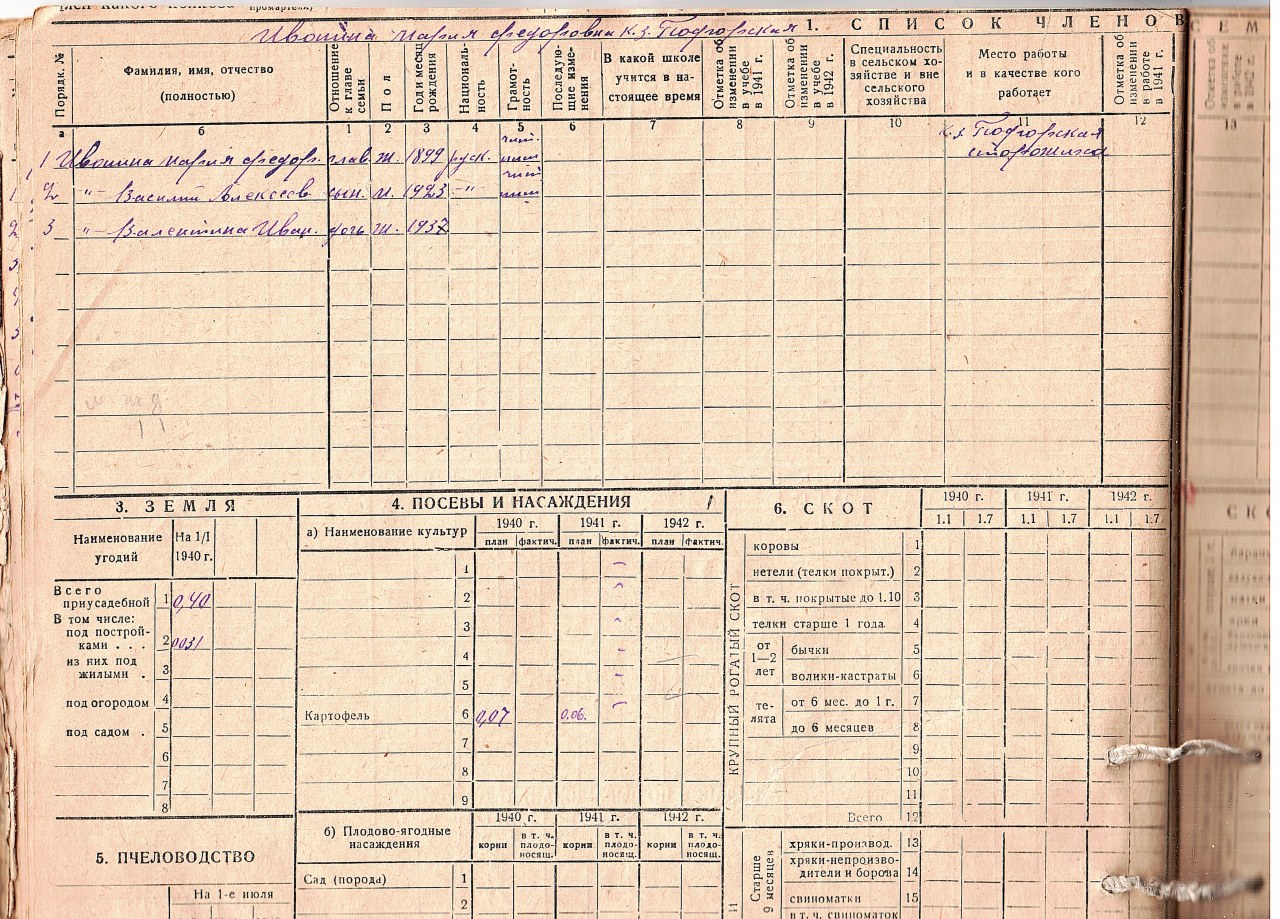 член какого колхоза
промартели)
Ивонина Мария Федоровна к.з. Подгорская 1. СПИСОК ЧЛЕНОВ
СЕМ
Порядк. №
Фамилия, имя, отчество
(полностью)
Отношение
к главе
семьи
Пол
Год и месяц
рождения
Националь-
ность
Грамот-
ность
Последую-
щие изме-
нения
В какой школе
учится в на-
стоящее время
Отметка об
изменении
в учебе
в 1941 г.
Отметка об
изменении
в учебе
в 1942 г.
Специальность
в сельском хо-
зяйстве и вне
сельского
хозяйства
Место работы
и в качестве кого
работает
Отметка об
изменении
в работе
в 1941 г.
а б 1 2 3 4 5 6 7 8 9 10 11 12 13
1 Ивонина Мария Федор. глав. ж. 1899 руск. к.з Подгорская
сторожиха
2 -"- Василий Алексеев. сын. м. 1923 -"-
3 -"- Валентина Иван. дочь ж. 1937
3. ЗЕМЛЯ
Наименование
угодий
На 1/I
1940 г.
Всего
приусадебной 1 0,40
В том числе:
под построй-
ками . . . 2 0031
из них под
жилыми . 3
под огородом 4
под садом . 5
6
7
8
5. ПЧЕЛОВОДСТВО
На 1-е июля
4. ПОСЕВЫ И НАСАЖДЕНИЯ
а) Наименование культур
1940 г. 1941 г. 1942 г.
план фактич. план фактич. план фактич.
1
2
3
4
5
Картофель 6 0,07 0.06.
7
8
9
б) Плодово-ягодные
насаждения
1940 г. 1941 г. 1942 г.
корни в т. ч. плодо-носящ. корни в т. ч. плодо-носящ. корни в т. ч. плодо-носящ.
Сад (порода) 1
2
6. СКОТ
1940 г. 1941 г. 1942 г.
1.1 1.7 1.1 1.7 1.1 1.7
КРУПНЫЙ РОГАТЫЙ СКОТ
коровы 1
нетели (телки покрыт.) 2
в т. ч. покрытые до 1.10 3
телки старше 1 года 4
от
1—2
лет
бычки 5
волики-кастраты 6
те-
лята
от 6 мес. до 1 г. 7
до 6 месяцев 8
9
10
11
Всего 12
Старше
9 месяцев
хряки-производ. 13
хряки-непроизво-
дители и борова 14
свиноматки 15
в т. ч. свиноматок